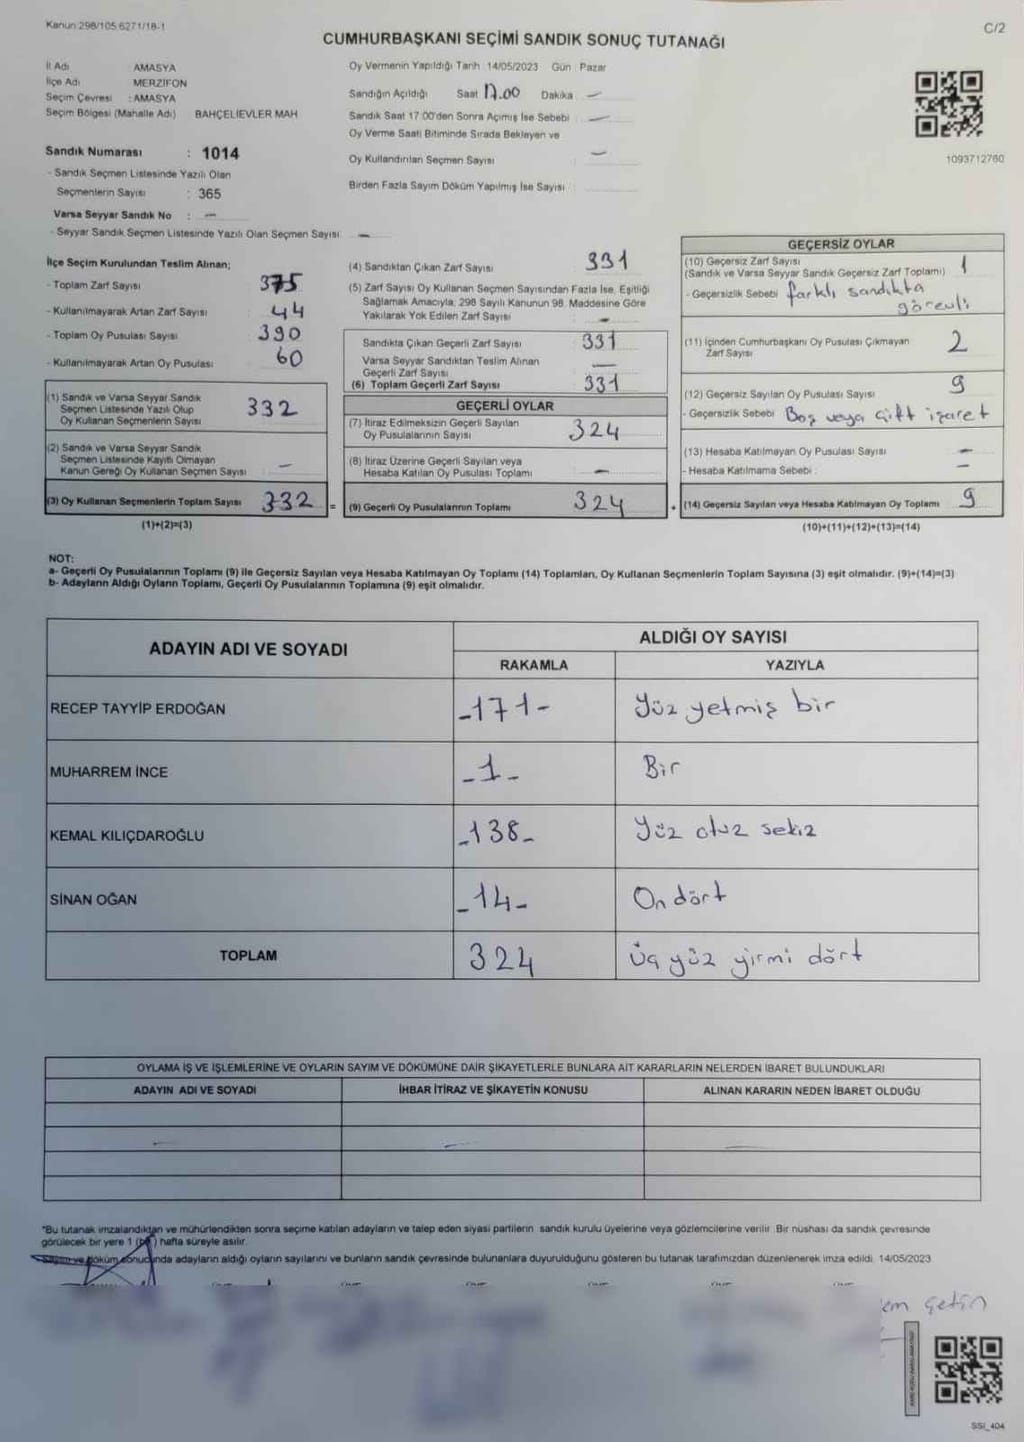 Kanun 298/105.6271/18-1
C/2
CUMHURBAŞKANI SEÇİMİ SANDIK SONUÇ TUTANAĞI
İl Adı AMASYA
İlçe Adı MERZİFON
Seçim Çevresi : AMASYA
Seçim Bölgesi (Mahalle Adı) BAHÇELİEVLER MAH
Sandık Numarası : 1014
- Sandık Seçmen Listesinde Yazılı Olan
Seçmenlerin Sayısı : 365
Varsa Seyyar Sandık No : —
- Seyyar Sandık Seçmen Listesinde Yazılı Olan Seçmen Sayısı —
Oy Vermenin Yapıldığı Tarih : 14/05/2023 Gün : Pazar
Sandığın Açıldığı Saat 17.00 Dakika —
Sandık Saat 17:00'den Sonra Açımış İse Sebebi —
Oy Verme Saati Bitiminde Sırada Bekleyen ve
Oy Kullandırılan Seçmen Sayısı —
Birden Fazla Sayım Döküm Yapılmış İse Sayısı
1093712760
İlçe Seçim Kurulundan Teslim Alınan;
- Toplam Zarf Sayısı 375
- Kullanılmayarak Artan Zarf Sayısı 44
- Toplam Oy Pusulası Sayısı 390
- Kullanılmayarak Artan Oy Pusulası 60
(1) Sandık ve Varsa Seyyar Sandık
Seçmen Listesinde Yazılı Olup
Oy Kullanan Seçmenlerin Sayısı 332
(2) Sandık ve Varsa Seyyar Sandık
Seçmen Listesinde Kayıtlı Olmayan
Kanun Gereği Oy Kullanan Seçmen Sayısı —
(3) Oy Kullanan Seçmenlerin Toplam Sayısı 332 =
(1)+(2)=(3)
(4) Sandıktan Çıkan Zarf Sayısı 331
(5) Zarf Sayısı Oy Kullanan Seçmen Sayısından Fazla İse, Eşitliği
Sağlamak Amacıyla, 298 Sayılı Kanunun 98. Maddesine Göre
Yakılarak Yok Edilen Zarf Sayısı —
Sandıkta Çıkan Geçerli Zarf Sayısı 331
Varsa Seyyar Sandıktan Teslim Alınan
Geçerli Zarf Sayısı —
(6) Toplam Geçerli Zarf Sayısı 331
GEÇERLİ OYLAR
(7) İtiraz Edilmeksizin Geçerli Sayılan
Oy Pusulalarının Sayısı 324
(8) İtiraz Üzerine Geçerli Sayılan veya
Hesaba Katılan Oy Pusulası Toplamı —
(9) Geçerli Oy Pusulalarının Toplamı 324 +
GEÇERSİZ OYLAR
(10) Geçersiz Zarf Sayısı
(Sandık ve Varsa Seyyar Sandık Geçersiz Zarf Toplamı) 1
- Geçersizlik Sebebi farklı sandıkta
görevli
(11) İçinden Cumhurbaşkanı Oy Pusulası Çıkmayan
Zarf Sayısı 2
(12) Geçersiz Sayılan Oy Pusulası Sayısı 9
- Geçersizlik Sebebi Boş veya çift işaret
(13) Hesaba Katılmayan Oy Pusulası Sayısı —
- Hesaba Katılmama Sebebi : —
(14) Geçersiz Sayılan veya Hesaba Katılmayan Oy Toplamı 9
(10)+(11)+(12)+(13)=(14)
NOT:
a- Geçerli Oy Pusulalarının Toplamı (9) ile Geçersiz Sayılan veya Hesaba Katılmayan Oy Toplamı (14) Toplamları, Oy Kullanan Seçmenlerin Toplam Sayısına (3) eşit olmalıdır. (9)+(14)=(3)
b- Adayların Aldığı Oyların Toplamı, Geçerli Oy Pusulalarının Toplamına (9) eşit olmalıdır.
ADAYIN ADI VE SOYADI ALDIĞI OY SAYISI
RAKAMLA YAZIYLA
RECEP TAYYİP ERDOĞAN -171- Yüz yetmiş bir
MUHARREM İNCE -1- Bir
KEMAL KILIÇDAROĞLU -138- Yüz otuz sekiz
SİNAN OĞAN -14- On dört
TOPLAM 324 Üç yüz yirmi dört
OYLAMA İŞ VE İŞLEMLERİNE VE OYLARIN SAYIM VE DÖKÜMÜNE DAİR ŞİKAYETLERLE BUNLARA AİT KARARLARIN NELERDEN İBARET BULUNDUKLARI
ADAYIN ADI VE SOYADI İHBAR İTİRAZ VE ŞİKAYETİN KONUSU ALINAN KARARIN NEDEN İBARET OLDUĞU
— — —
*Bu tutanak imzalandıktan ve mühürlendikten sonra seçime katılan adayların ve talep eden siyasi partilerin sandık kurulu üyelerine veya gözlemcilerine verilir. Bir nüshası da sandık çevresinde
görülecek bir yere 1 (bir) hafta süreyle asılır.
Sayım ve döküm sonucunda adayların aldığı oyların sayılarını ve bunların sandık çevresinde bulunanlara duyurulduğunu gösteren bu tutanak tarafımızdan düzenlenerek imza edildi. 14/05/2023
em Çetin
SSI_404